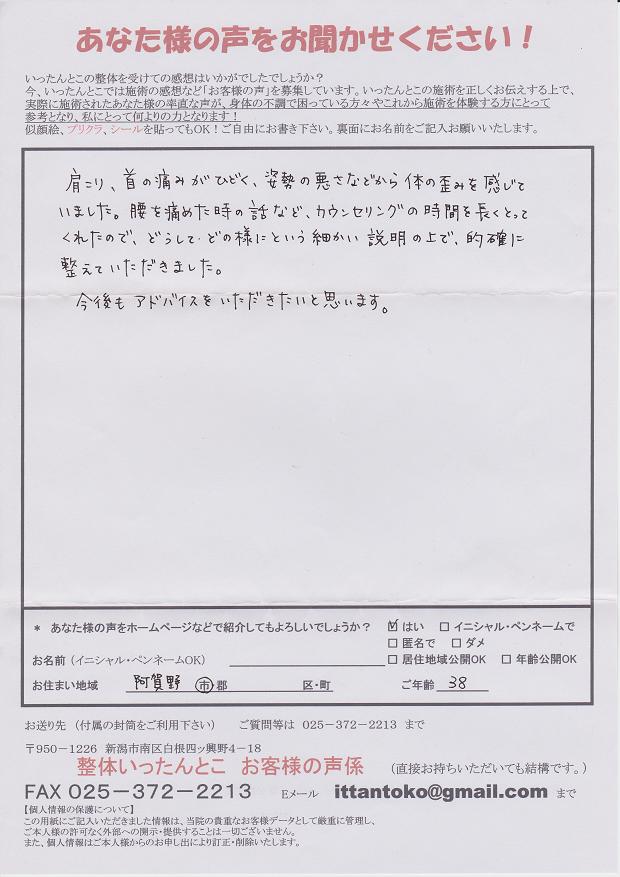 あなた様の声をお聞かせください！
いったんとこの整体を受けての感想はいかがでしたでしょうか？
今、いったんとこでは施術の感想など「お客様の声」を募集しています。いったんとこの施術を正しくお伝えする上で、
実際に施術されたあなた様の率直な声が、身体の不調で困っている方々やこれから施術を体験する方にとって
参考となり、私にとって何よりの力となります！
似顔絵、プリクラ、シールを貼ってもOK！ご自由にお書き下さい。裏面にお名前をご記入お願いいたします。
肩こり、首の痛みがひどく、姿勢の悪さなどから体の歪みを感じて
いました。腰を痛めた時の話など、カウンセリングの時間を長くとって
くれたので、どうして・どの様にという細かい説明の上で、的確に
整えていただきました。
今後もアドバイスをいただきたいと思います。
* あなた様の声をホームページなどで紹介してもよろしいでしょうか？ ☑ はい □ イニシャル・ペンネームで
□ 匿名で □ ダメ
お名前（イニシャル・ペンネームOK） □ 居住地域公開OK □ 年齢公開OK
お住まい地域 阿賀野 市 郡 区・町 ご年齢 38
お送り先 （付属の封筒をご利用下さい） ご質問等は 025－372－2213 まで
〒950－1226 新潟市南区白根四ッ興野4－18
整体いったんとこ お客様の声係 （直接お持ちいただいても結構です。）
FAX 025－372－2213 Eメール ittantoko@gmail.com まで
【個人情報の保護について】
この用紙にご記入いただきました情報は、当院の貴重なお客様データとして厳重に管理し、
ご本人様の許可なく外部への開示・提供することは一切ございません。
また、個人情報はご本人様からのお申し出により訂正・削除いたします。